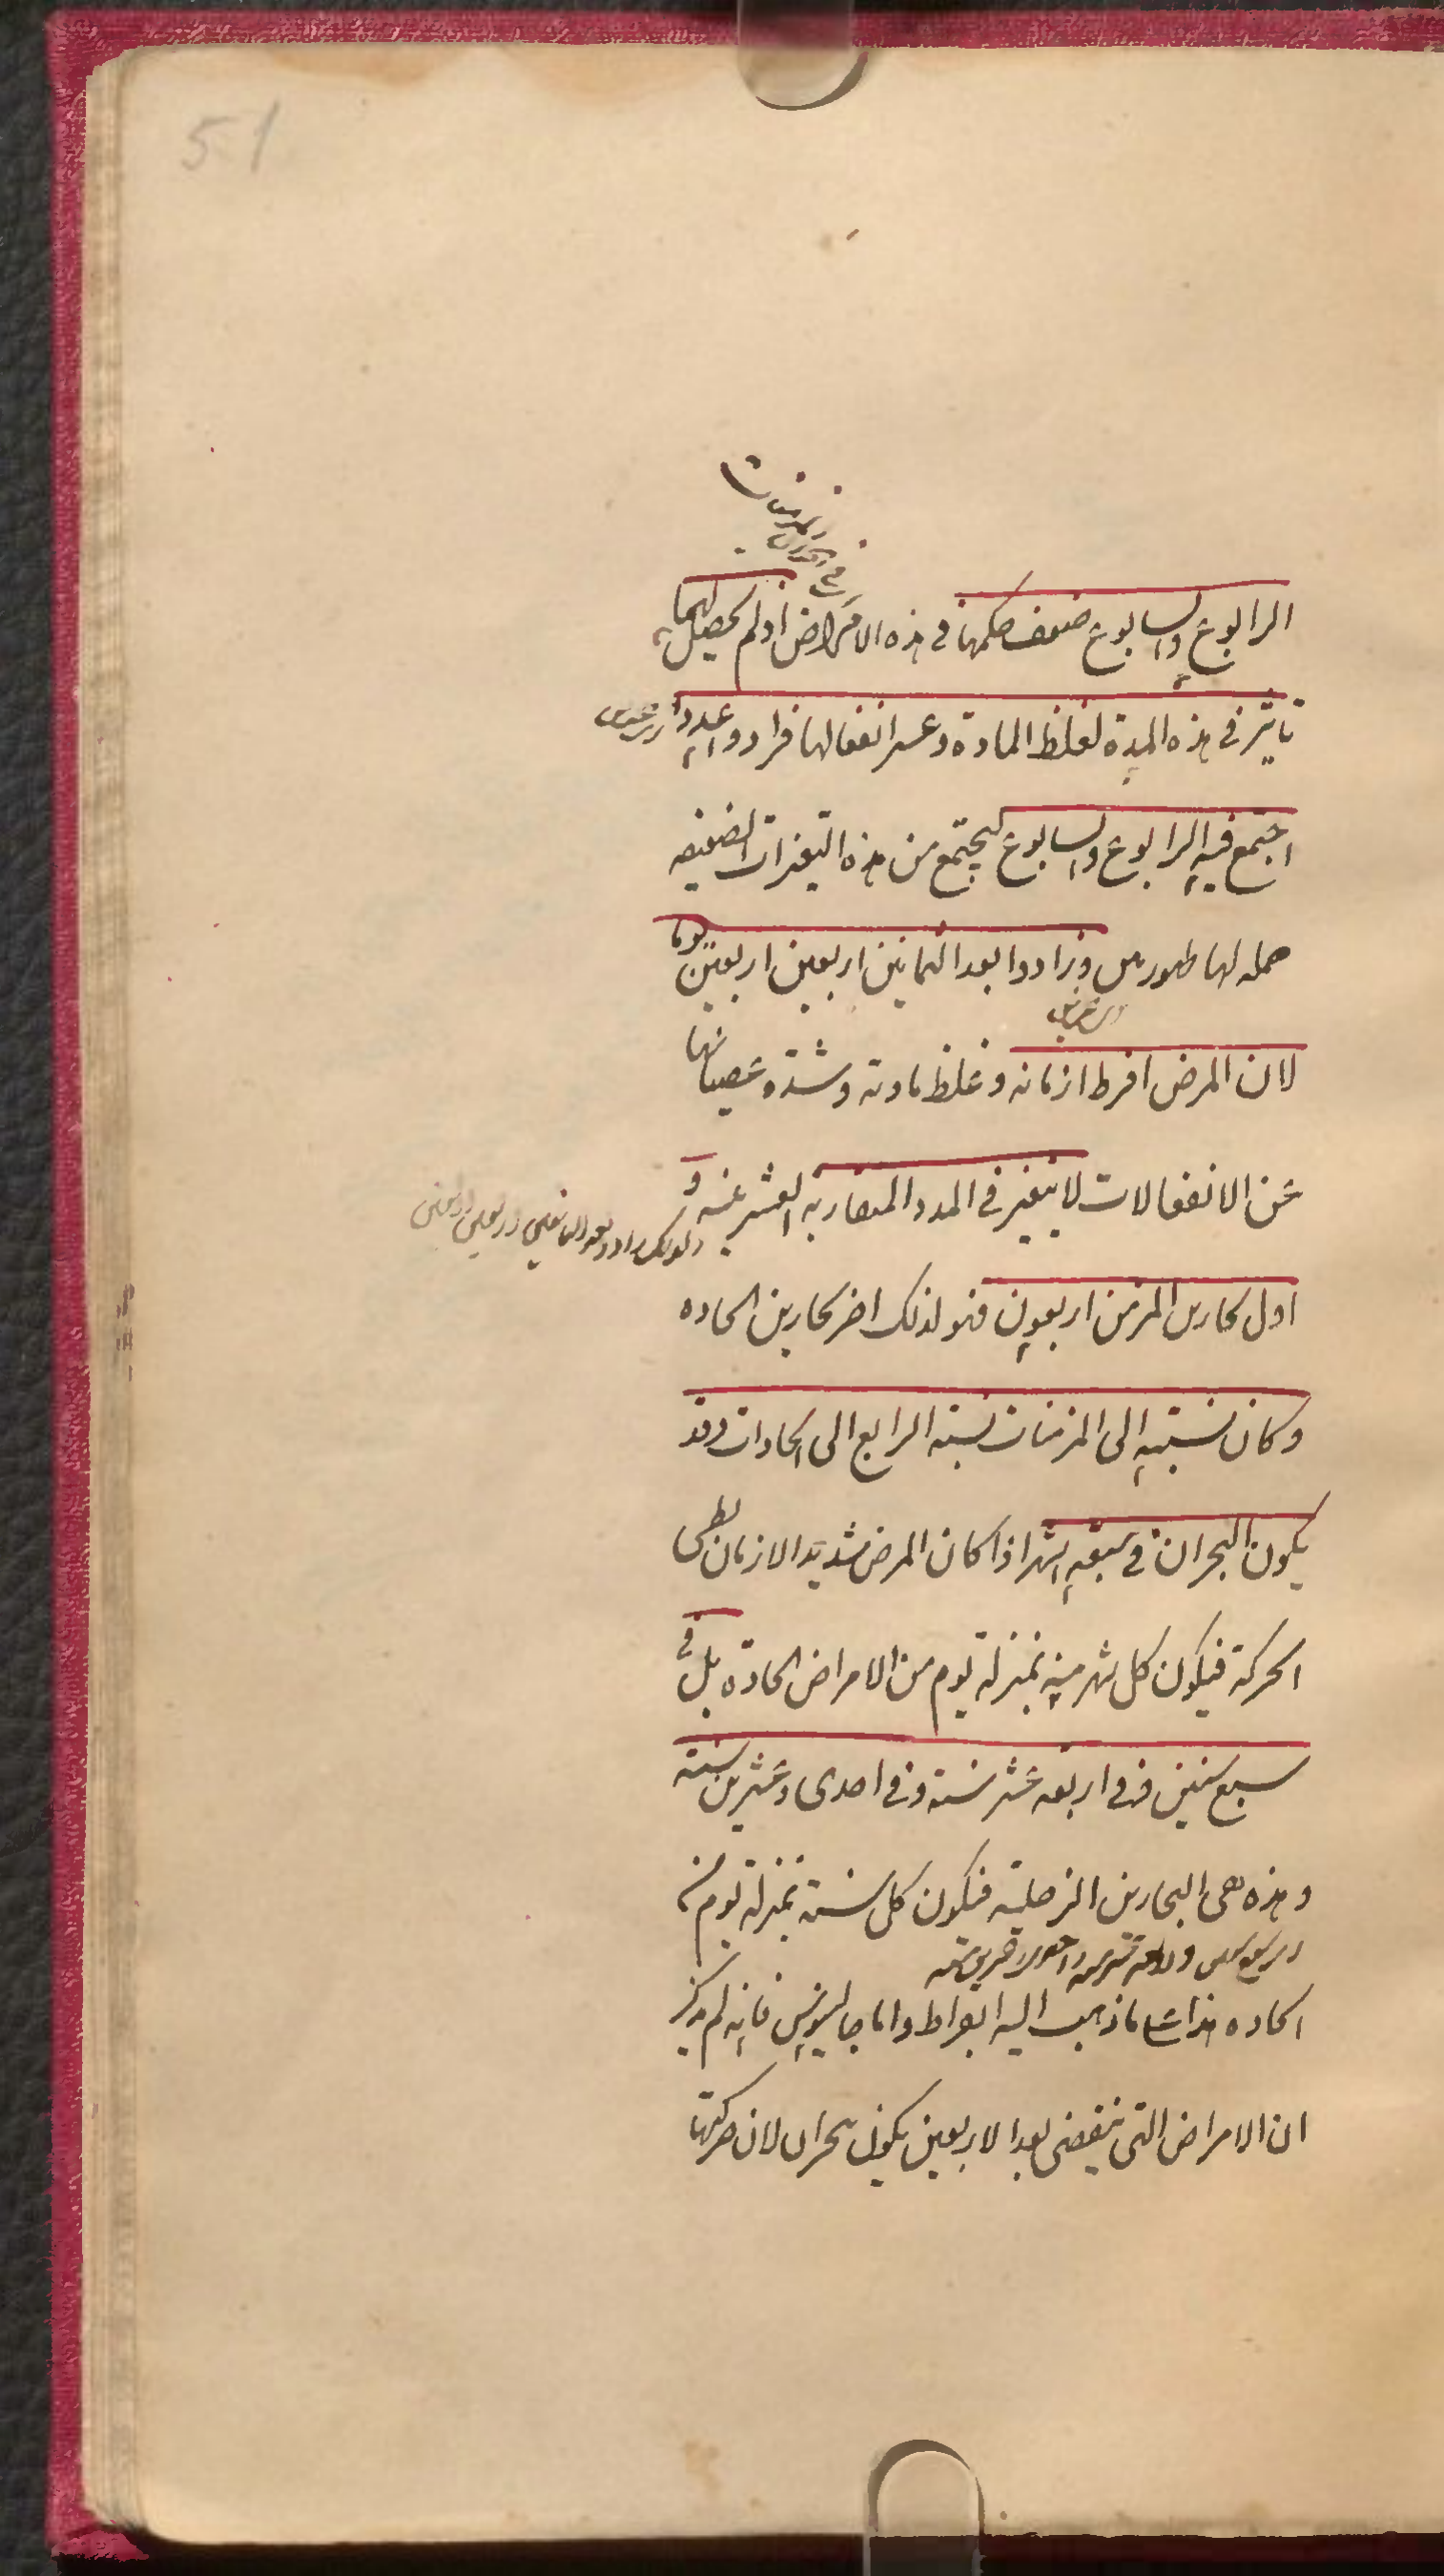 51
في الامراض المزمنات
الرابوع والسابوع ضعف حكمها في هذه الامراض اذ لم يحصل لهما
تاثير في هذه المدة لغلظ المادة وعسر انفعالها فرادوا عددا
اجتمع فيه الرابوع والسابوع ليجتمع من هذه التغيرات الضعيفه
جمله لها ظهور وزادوا بعد الثمانين اربعين اربعين يوما
لان المرض افرط ازمانه وغلظ مادته وشدة عصيانها
عن الانفعالات لا يتغير في المدد المتقاربه العشرينيه و
اول بحارين المزمن اربعون فهو لذلك اخر بحارين الحاده
وكان نسبته الى المزمنات نسبته الرابع الى الحادات وقد
يكون البحران في سبعه اشهر اذا كان المرض شديد الازمان بطى
الحركة فيكون كل شهر منه بمنزلة يوم من الامراض الحادة بل في
سبع سنين ففي اربعه عشر سنة وفي احدى وعشرين سنة
وهذه هى البحارين الزحلية فيكون كل سنة بمنزلة يوم من
الحاده هذا على ما ذهب اليه ابقراط واما جالينوس فانه لم يذكر
ان الامراض التى ينقضى بعد الاربعين يكون ببحران لان حركتها